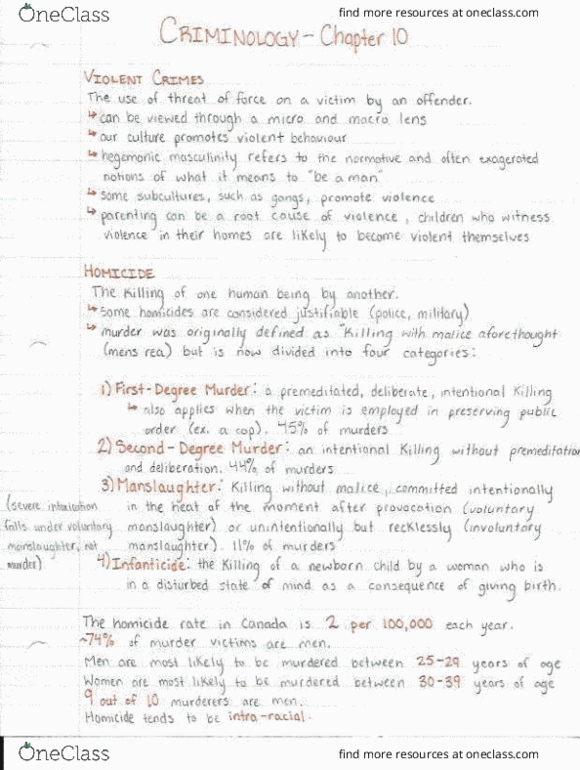 OneClass
find more resources at oneclass.com
CRIMINOLOGY - Chapter 10
VIOLENT CRIMES
The use of threat of force on a victim by an offender.
↳ can be viewed through a micro and macro lens
↳ our culture promotes violent behaviour
↳ hegemonic masculinity refers to the normative and often exagerated
notions of what it means to "be a man"
↳ some subcultures, such as gangs, promote violence
↳ parenting can be a root cause of violence, children who witness
violence in their homes are likely to become violent themselves
HOMICIDE
The Killing of one human being by another.
↳ some homicides are considered justifiable (police, military)
↳ murder was originally defined as "Killing with malice aforethought
(mens rea) but is now divided into four categories:
1) First-Degree Murder: a premeditated, deliberate, intentional Killing
↳ also applies when the victim is employed in preserving public
order (ex. a cop). 45% of murders
2) Second-Degree Murder: an intentional Killing without premeditation
and deliberation. 44% of murders
3) Manslaughter: Killing without malice, committed intentionally
in the heat of the moment after provocation (voluntary
manslaughter) or unintentionally but recklessly (involuntary
manslaughter). 11% of murders
(severe intoxication
falls under voluntary
manslaughter, not
murder)
4) Infanticide: the Killing of a newborn child by a woman who is
in a disturbed state of mind as a consequence of giving birth.
The homicide rate in Canada is 2 per 100,000 each year.
~74% of murder victims are men.
Men are most likely to be murdered between 25-29 years of age
Women are most likely to be murdered between 30-39 years of age
9 out of 10 murderers are men.
Homicide tends to be intra-racial.
OneClass
find more resources at oneclass.com